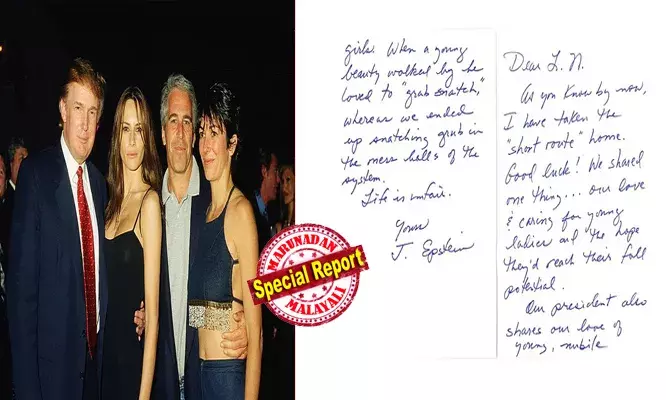 Dear L. N.
As you know by now,
I have taken the
"short route" home.
Good luck! We shared
one thing... our love
& caring for young
ladies and the hope
they'd reach their full
potential.
Our president also
shares our love of
young, nubile
girls. When a young
beauty walked by he
loved to "grab snatch,"
whereas we ended
up snatching grub in
the mess halls of the
system.
Life is unfair.
Yours
J. Epstein
MARUNADAN
Special Report
MALAYALI